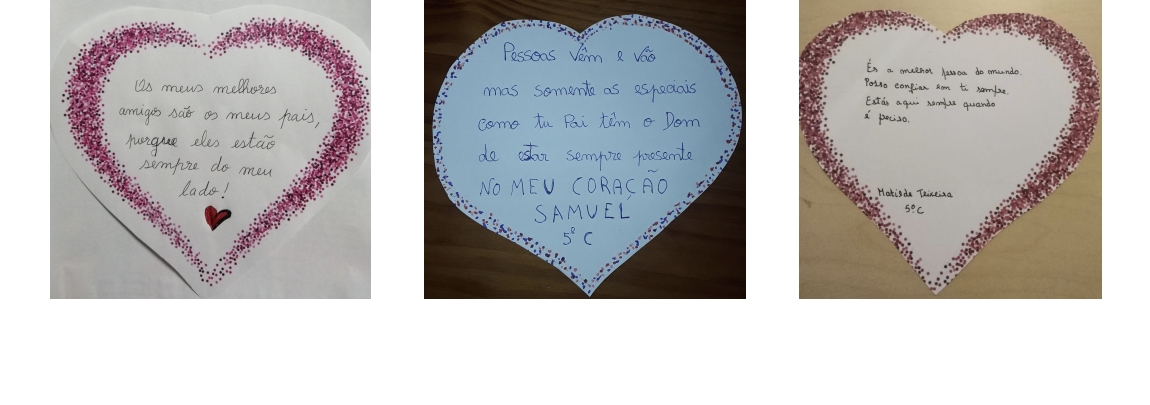 Os meus melhores
amigos são os meus pais,
porque eles estão
sempre do meu
lado!
Pessoas vêm e vão
mas somente as especiais
como tu Pai têm o Dom
de estar sempre presente
NO MEU CORAÇÃO
SAMUEL
5º C
És a melhor pessoa do mundo.
Posso confiar em ti sempre.
Estás aqui sempre quando
é preciso.
Matilde Teixeira
5º C